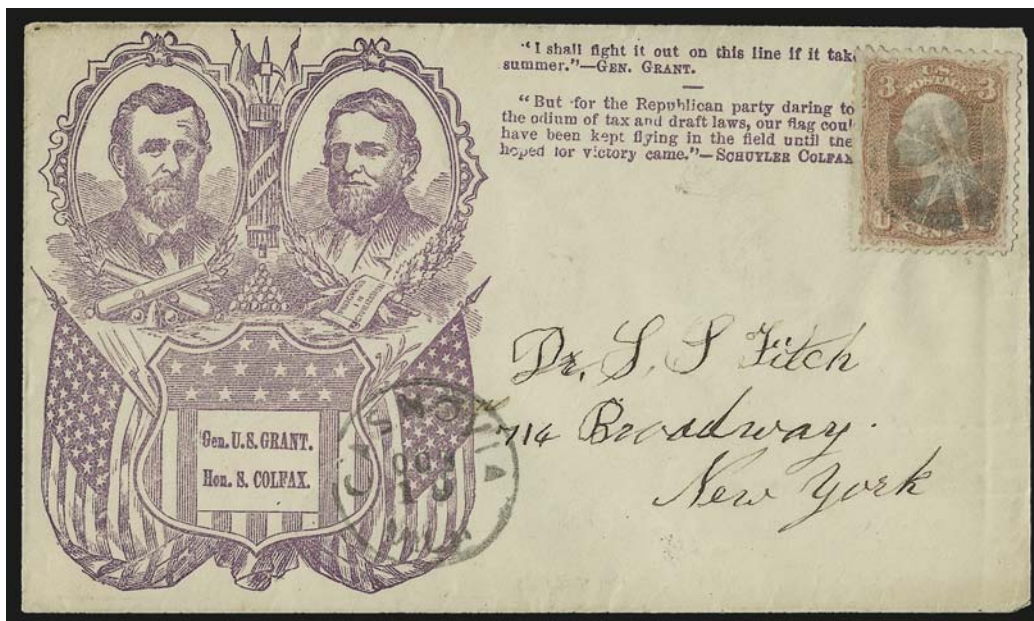 "I shall fight it out on this line if it take
summer."—GEN. GRANT.
"But for the Republican party daring to
the odium of tax and draft laws, our flag coul
have been kept flying in the field until the
hoped for victory came."—SCHUYLER COLFAX
3 U.S. 3
POSTAGE
U
CENTS
UNION
Gen. U.S. GRANT.
Hon. S. COLFAX.
Dr. S. S Fitch
714 Broadway.
New York